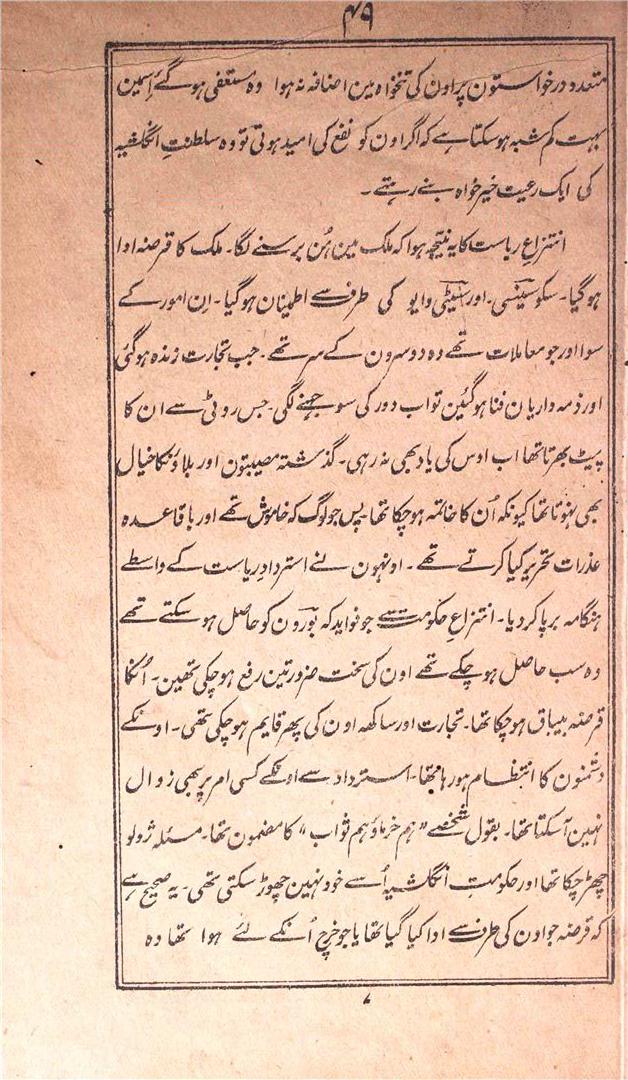 ۴۹
متعدد درخواستون پر اون کی تنخواہ مین اضافہ نہ ہوا وہ مستعفی ہو گئے اِسمین
بہت کم شبہ ہو سکتا ہے کہ اگر اون کو نفع کی امید ہوتی تو وہ سلطنتِ انگلشیہ
کی ایک رعیت خیر خواہ بنے رہتے۔
انتزاعِ ریاست کا یہ نتیجہ ہوا کہ ملک مین ہُن برسنے لگا۔ ملک کا قرضہ ادا
ہو گیا۔ سکوسینسی۔ اور سیٹی وایو کی طرف سے اطمینان ہو گیا۔ اِن امور کے
سوا اور جو معاملات تھے وہ دوسرون کے سر تھے۔ جب تجارت زندہ ہو گئی
اور ذمہ داریان فنا ہو گئین تو اب دور کی سوجھنے لگی۔ جس روٹی سے ان کا
پیٹ بھرتا تھا اب اوس کی یاد بھی نہ رہی۔ گذشتہ مصیبتون اور بلاؤنکا خیال
بھی نہوتا تھا کیونکہ اُن کا خاتمہ ہو چکا تھا۔ پس جو لوگ کہ خاموش تھے اور باقاعدہ
عذرات تحریر کیا کرتے تھے۔ اونہون نے استردادِ ریاست کے واسطے
ہنگامہ برپا کر دیا۔ انتزاعِ حکومت سے جو فواید کہ بورون کو حاصل ہو سکتے تھے
وہ سب حاصل ہو چکے تھے اون کی سخت ضرورتین رفع ہو چکی تھین۔ اُنکا
قرضہ بیباق ہو چکا تھا۔ تجارت اور ساکھہ اون کی پھر قایم ہو چکی تھی۔ اونکے
دشمنون کا انتظام ہو رہا تھا۔ استرداد سے اونکے کسی امر پر بھی زوال
نہین آ سکتا تھا۔ بقول شخصے "ہم خرما و ہم ثواب" کا مضمون تھا۔ مسئلہ زولو
چھڑ چکا تھا اور حکومتِ انگلشیہ اُسے خود نہین چھوڑ سکتی تھی۔ یہ صحیح ہے
کہ قرضہ جو اون کی طرف سے ادا کیا گیا تھا یا جو خرچ اُنکے لئے ہوا تھا وہ